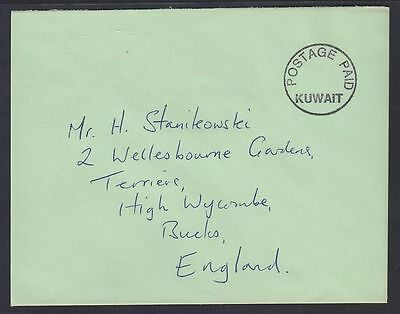 POSTAGE PAID
KUWAIT
Mr. H. Stanikowski
2 Wellesbourne Gardens,
Terriers,
High Wycombe,
Bucks,
England.